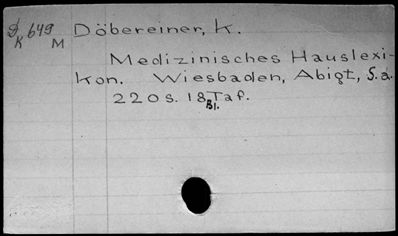 K 649 M Döbereiner, K.
Medizinisches Hauslexi-
kon. Wiesbaden, Abigt, S.a.
220 S. 18 Bl. Taf.